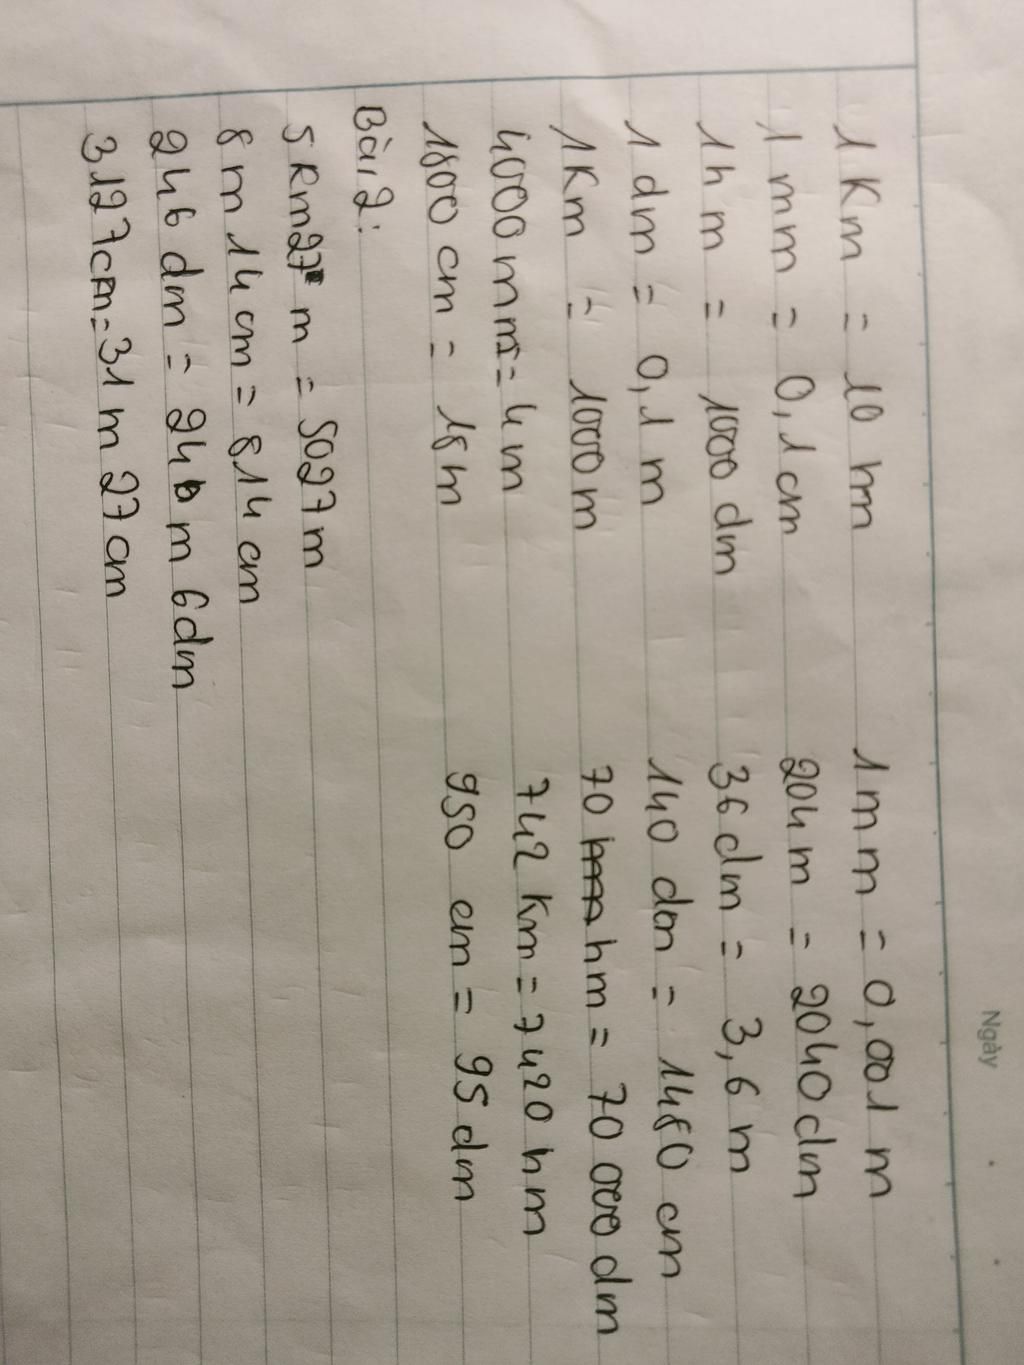 Ngày
1 Km = 10 hm 1mm = 0,001 m
1 mm = 0,1 cm 204m = 2040dm
1hm = 1000 dm 36dm = 3,6 m
1 dm = 0,1 m 140 dm = 1480 cm
1Km = 1000m 70 hm = 70 000 dm
4000mm = 4m 742 Km = 7420 hm
1800 cm = 18m 950 cm = 95 dm
Bài 2:
5 Km27 m = 5027m
8 m 14 cm = 814 cm
246 dm = 24 m 6dm
3127cm = 31 m 27 cm